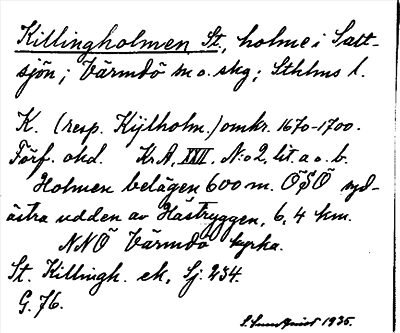 Killingholmen, St., holme i Salt-
sjön; Värmdö m o. skg; Sthlms l.
K. (resp. Kijlholm.) omkr. 1670-1700.
Förf. okd. Kr.A, XXII, N:o 2, lit. a o. b.
Holmen belägen 600 m. ÖSÖ syd-
östra udden av Hästryggen, 6,4 km.
NNÖ Värmdö kyrka.
St. Killingh. ek, Sj. 234.
G. 76.
S. Sundquist 1935.